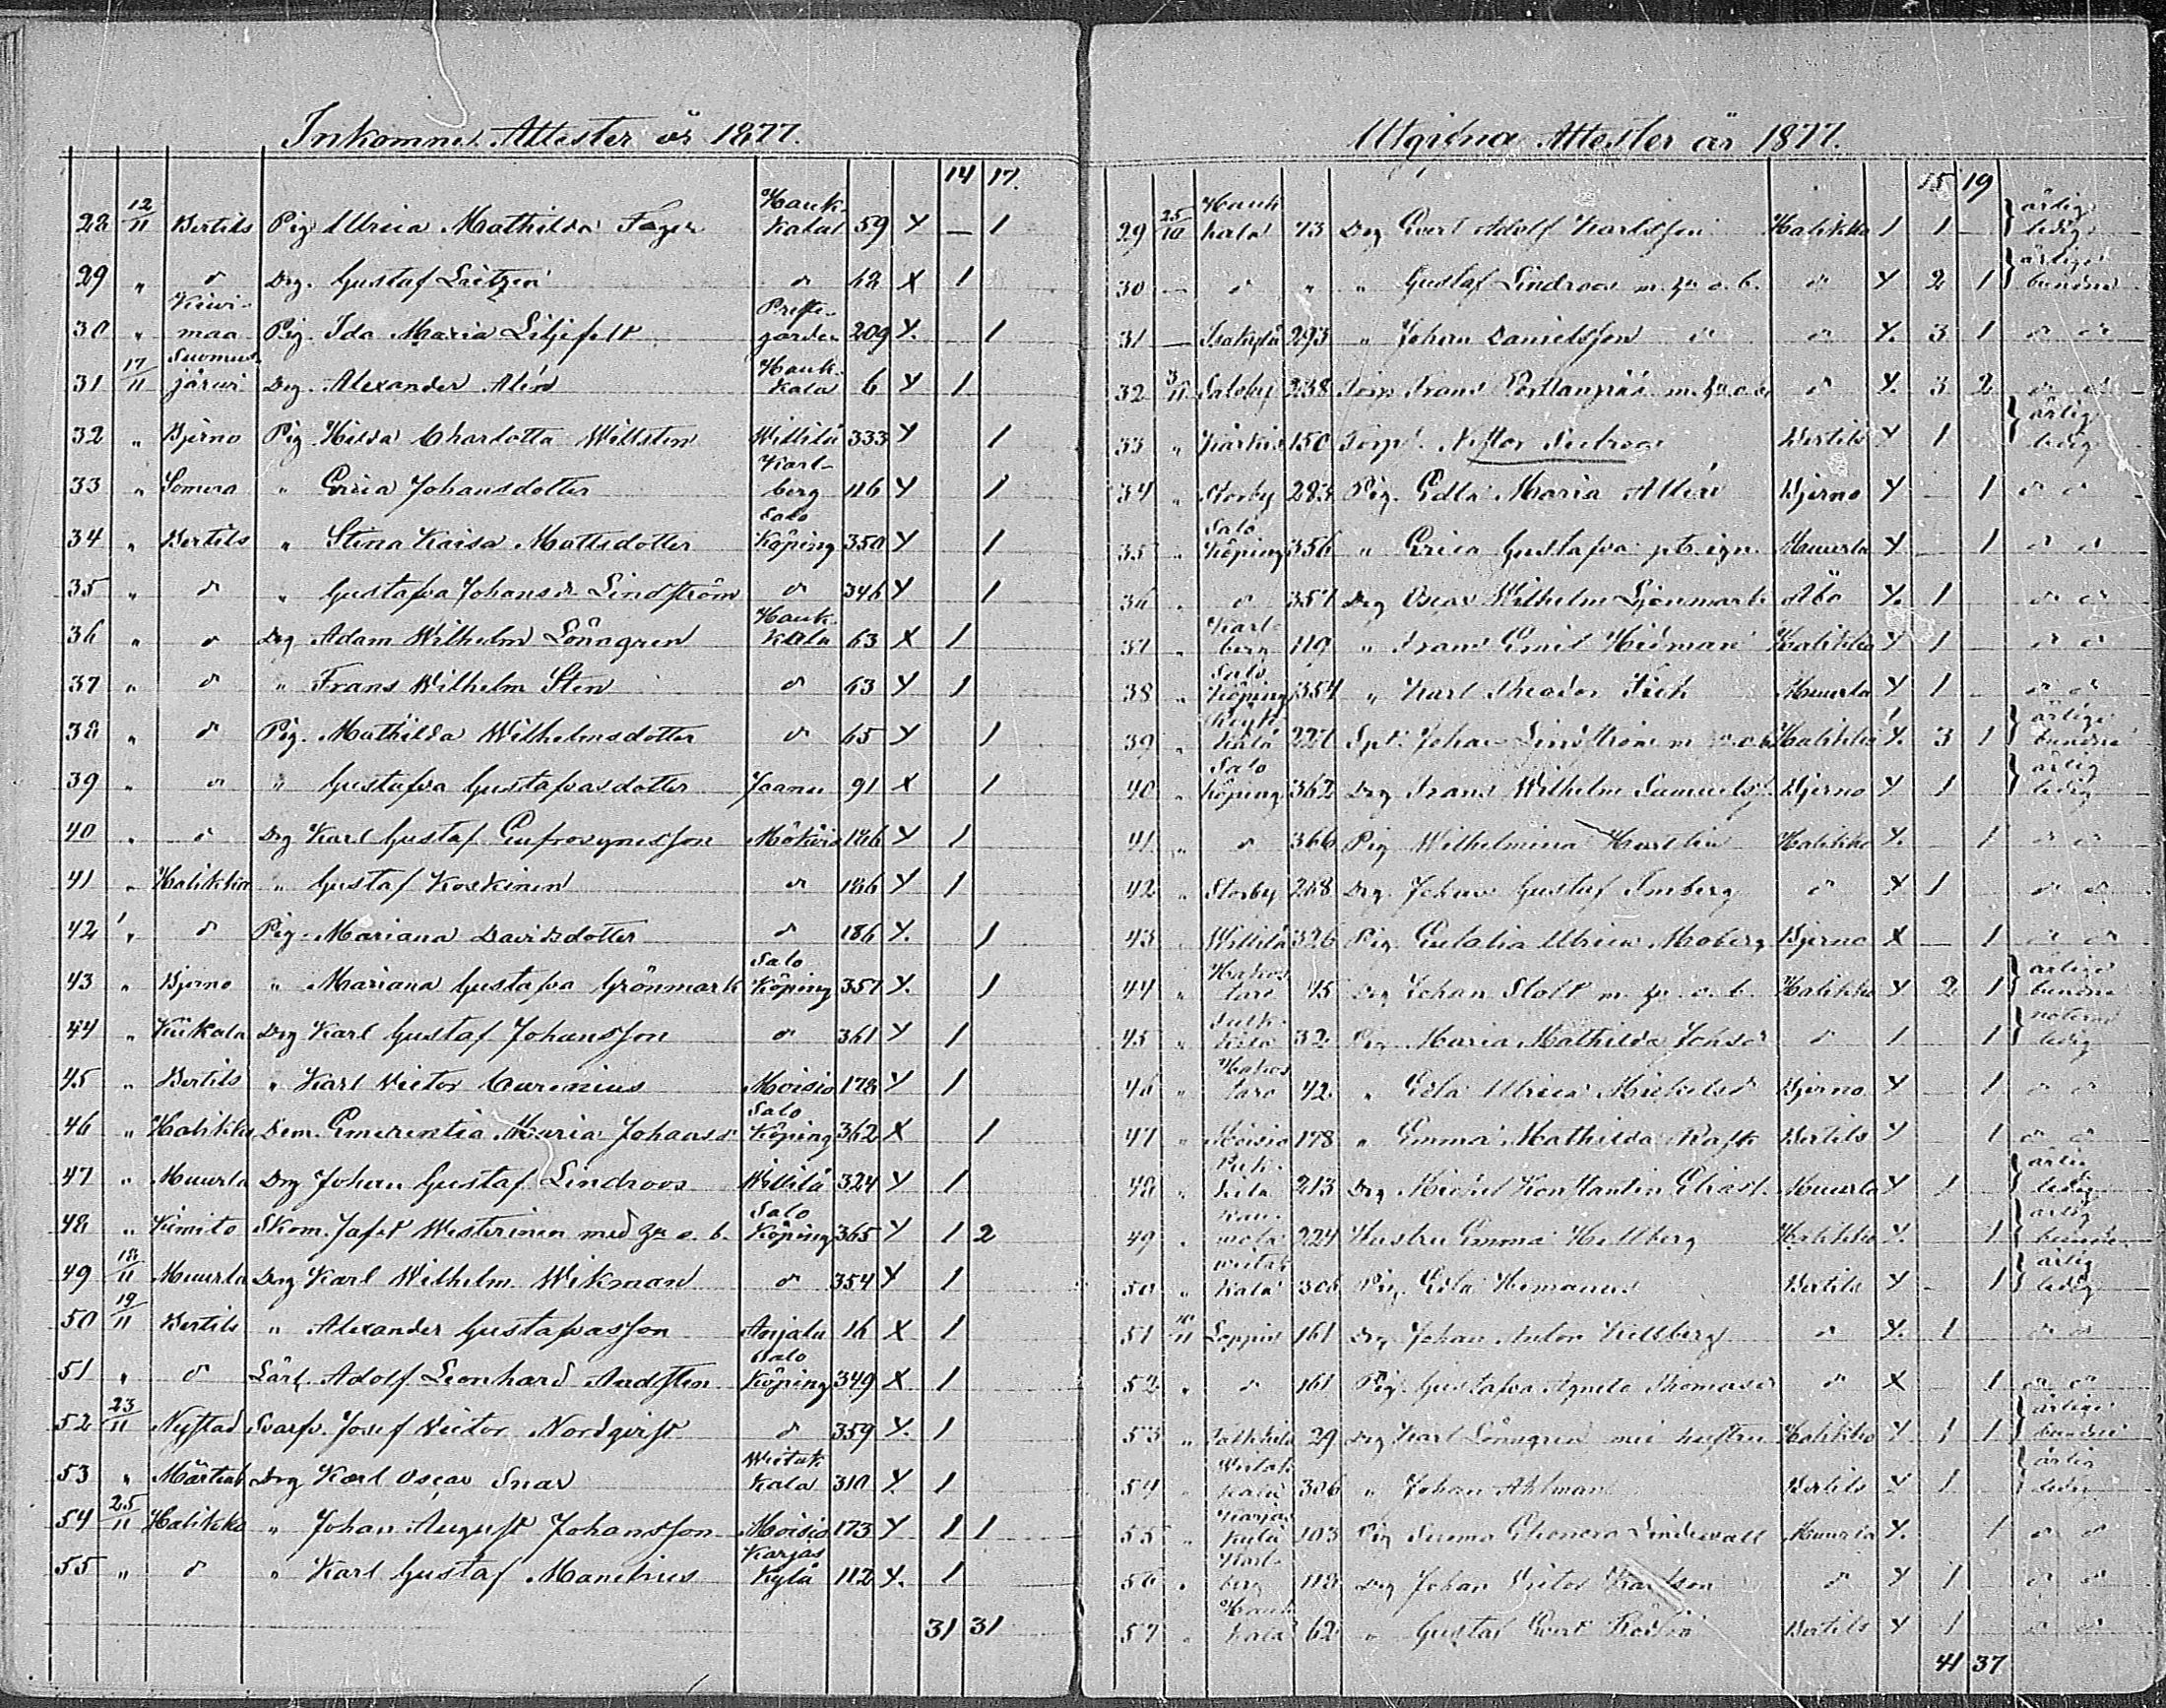 Inkomne Attester år 1877.
14 17.
28 12/11 Bertils Pig Ulrica Mathilda Fager Hauk-kala 59 Y — 1
29 " d:o Drg. Gustaf Lietzén d:o 62 X 1
30 " Kiwi-maa Pig. Ida Maria Liljefelt Preste-gården 209 Y. 1
31 17/11 Suomus-järwi Drg. Alexander Alén Hauk-kala 6 Y 1
32 " Bjerno Pig Hilda Charlotta Willsten Willilä 333 Y 1
33 " Somero " Erica Johansdotter Karl-berg 116 Y 1
34 " Bertils " Stina Kaisa Mattsdotter Salo Köping 350 Y 1
35 " d:o " Gustafva Johansd:r Lindström d:o 346 Y 1
36 " d:o Drg Adam Wilhelm Lönngren Hauk-kala 63 X 1
37 " d:o " Frans Wilhelm Sten d:o 63 Y 1
38 " d:o Pig. Mathilda Wilhelmsdotter d:o 65 Y 1
39 " d:o " Gustafva Gustafvasdotter Joanu 91 X 1
40 " d:o Drg Karl Gustaf Eufrosynesson 186 Y 1
41 " Halikko " Gustaf Koskinen d:o 186 Y 1
42 " d:o Pig. Mariana Davidsdotter d:o 186 Y. 1
43 " Bjerno " Mariana Gustafva Grönmark Salo Köping 357 Y. 1
44 " Kiikala Drg Karl Gustaf Johansson d:o 361 Y 1
45 " Bertils " Karl Victor Laurenius Moisio 178 Y 1
46 " Halikko Dem. Emerentia Maria Johansd:r Salo Köping 362 X 1
47 " Muurla Drg Johan Gustaf Lindroos Willilä 324 Y 1
48 " Kimito Skom. Jafet Westerinen med hu o. b. Salo Köping 365 Y 1 2
49 18/11 Muurla Drg Karl Wilhelm Wikman d:o 354 Y 1
50 19/11 Bertils " Alexander Gustafvasson Anjala 16 X 1
51 " d:o Lärl. Adolf Leonhard Andsten Salo Köping 349 X 1
52 23/11 Nystad Svarfv. Josef Victor Nordqvist d:o 359 Y. 1
53 " Mårtens Drg Karl Oscar Snar Wiitak-kala 310 Y. 1
54 25/11 Halikko " Johan August Johansson Moisio 173 Y 1 1
55 " d:o " Karl Gustaf Manelius Karjas Kylä 112 Y. 1
31 31
Utgifna Attester år 1877.
15 19
29 25/10 Hauk kala 73 Drg Evert Adolf Karlsson Halikko 1 1 — ärlig ledig
30 — d:o " " Gustaf Lindroos m. hu o. b. d:o Y 2 1 ärlige bundne
31 — Isakylä 293 " Johan Danielsson d:o d:o Y. 3 1 d:o d:o
32 3/11 Saloby 238 Torp Frans m. hu o. b. d:o Y. 3 2 d:o d:o
33 " Kärkis 150 Torp. Nestor Bertils Y 1 ärlig ledig
34 " Storby 283 Pig. Edla Maria Allén Bjerno Y — 1 d:o d:o
35 " Salo Köping 356 " Erica Gustafva Muurla Y — 1 d:o d:o
36 " d:o 357 Drg Oscar Wilhelm Åbo Y. 1 d:o d:o
37 " Karl-berg 119 " Frans Emil Hedman Halikko Y 1 d:o d:o
38 " Salo Köping 354 " Karl Theodor Muurla Y 1 d:o d:o
39 " 227 Johan Lindström m Halikko Y. 3 1 ärlige bundne
40 " Salo Köping 362 Drg Frans Wilhelm Samuelss. Bjerno Y 1 ärlig ledig
41 " d:o 366 Pig Wilhelmina Halikko Y. 1 d:o d:o
42 " Storby 268 Drg. Johan Gustaf Imberg d:o X 1 d:o d:o
43 Willilä 326 Pig. Eulalia Ulrica Moberg Bjerno X — 1 d:o d:o
44 " Hakos-taro 45 Drg Johan Stolt m. hu o. b. Halikko Y 2 1 ärlige bundne
45 " 32 Pig Maria Mathilda Johsd:r d:o 1 1 noterad ledig
46 " Hakos taro 42 " Edla Ulrica Mickelsd:r Bjerno Y — 1 d:o d:o
47 " Moisio 178 " Emma Mathilda Bertils Y 1 d:o d:o
48 " 213 Drg Michel Konstantin Eliass. Muurla Y 1 ärlig ledig
49 " 224 Hustru Emma Hellberg Halikko Y. 1 ärlig
50 " Wiitak kala 308 Pig. Edla Bertils Y — 1 ärlig ledig
51 10/11 Loppis 161 Drg Johan Anton d:o Y. 1 d:o d:o
52 " d:o 161 Pig. Gustafva Agneta Thomasd:r d:o X — 1 d:o d:o
53 " 29 Drg Karl Lönngren med hustru Halikko Y 1 1 ärlige bundne
54 " Wiitak kala 306 " Johan Ahlman Bertils Y 1 ärlig ledig
55 " Karjas kylä 103 Pig Eleonora Lindewall Muurla Y. 1 d:o d:o
56 " Karl-berg 118 Drg Johan Victor d:o Y 1 d:o d:o
57 " Hauk kala 62 " Gustaf Evert Bertils Y 1 d:o d:o
41 37